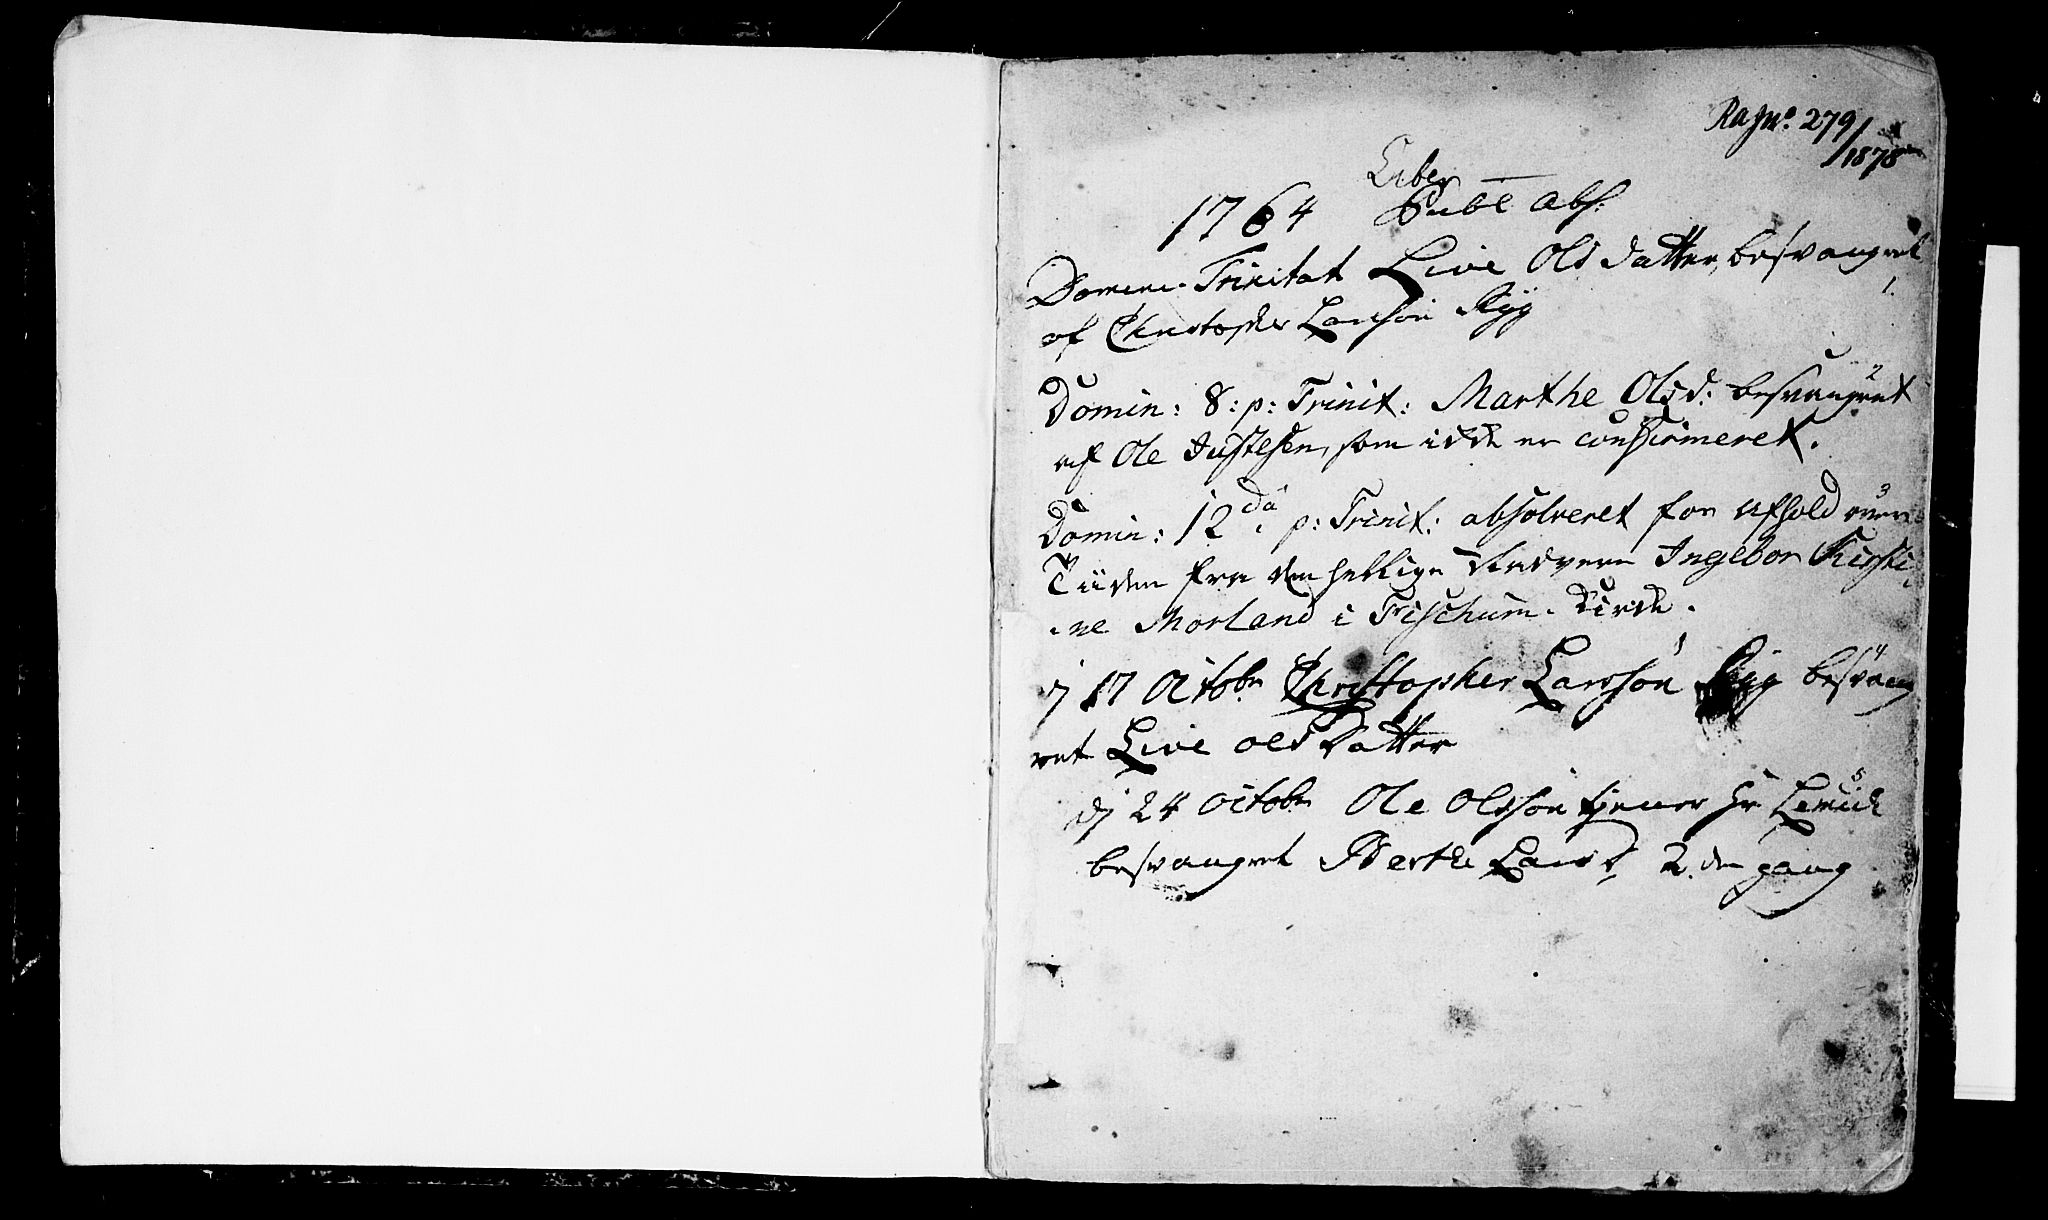 Ragn°. 279/1878
Liber
1764 Publ abs:
Domin. Trinitat Live Olsdatter, besvangret
1.
af Christopher Larsøn Ryg
2
Domin: 8: p: Trinit: Marthe Olsd: besvangret
af Ole Justesen, som ikke er confirmeret.
3
Domin: 12 p: Trinit: absolveret for afhold over
Tiiden fra den hellige Nadvere Ingebor Kirsti-
-ne Morland i Fischum Kirke.
4
17 Octobr Christopher Larsøn Ryg besvang
ret Live olsdatter
5
dj 24 octobr Ole Olssøn tjener Hr
besvangret Berthe Larsd. 2den gang